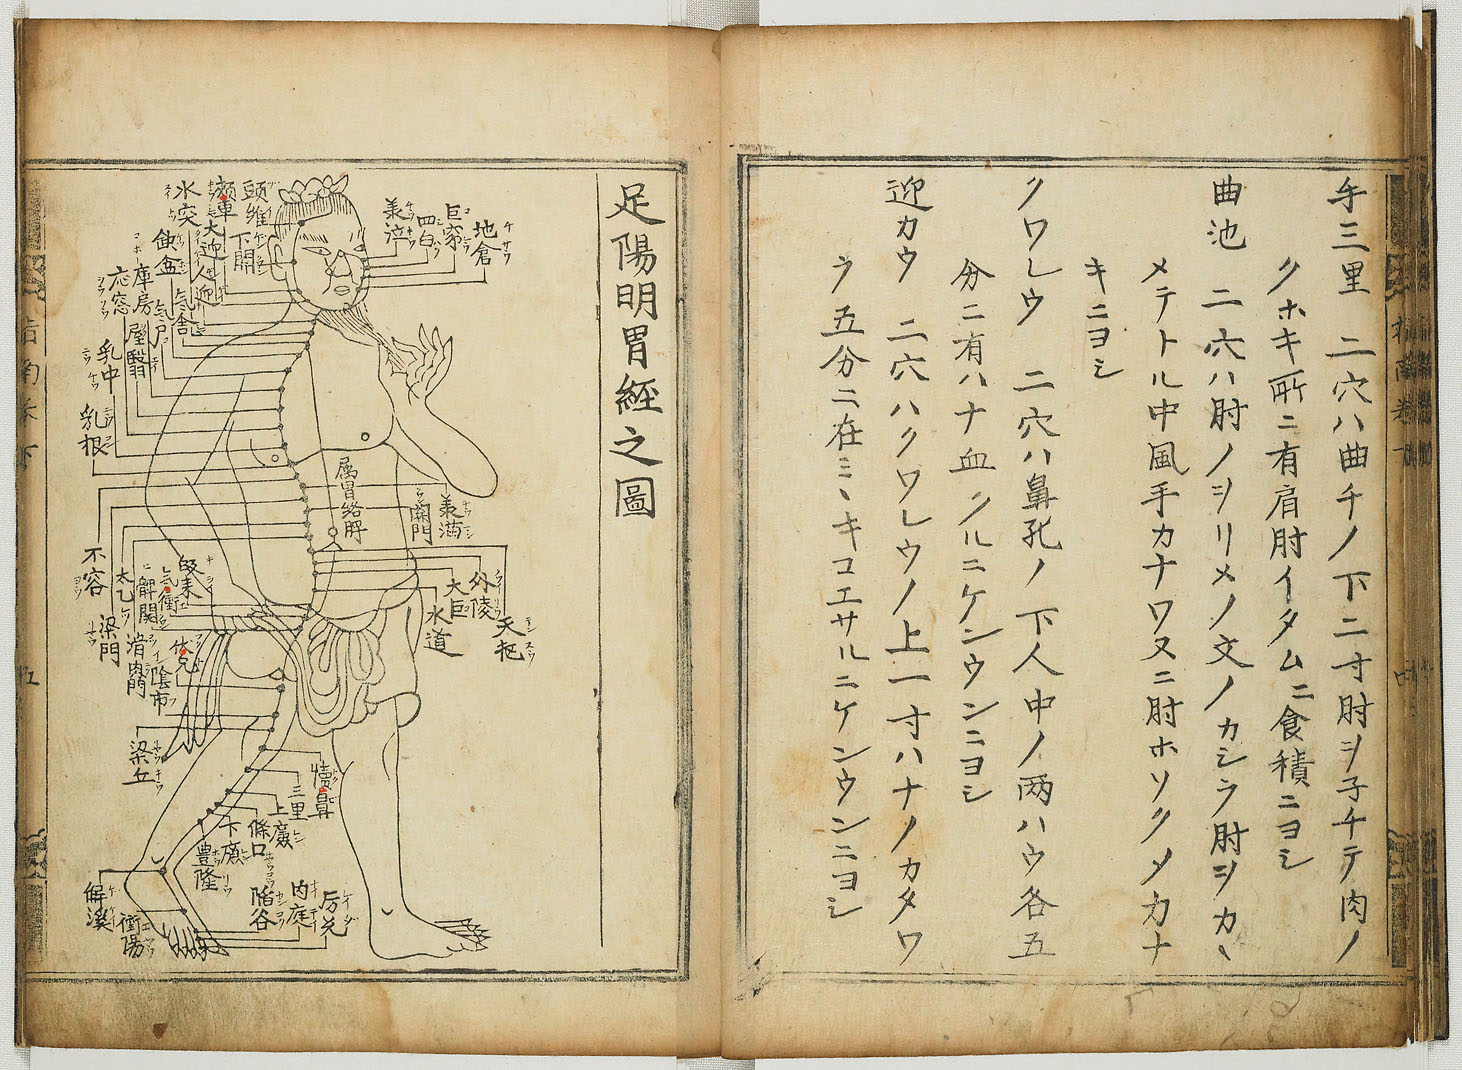 手三里 二穴ハ曲チノ下二寸肘ヲ子チテ肉ノ
クホキ所ニ有肩肘イタムニ食積ニヨシ
曲池 二穴ハ肘ノヲリメノ文ノカシラ肘ヲカヽ
メテトル中風手カナワヌニ肘ホソクメカナ
キニヨシ
クワレウ 二穴ハ鼻孔ノ下人中ノ両ハウ各五
分ニ有ハナ血クルニケンウンニヨシ
迎カウ 二穴ハクワレウノ上一寸ハナノカタワ
ラ五分ニ在ミヽキコエサルニケンウンニヨシ
足陽明胃經之圖
地倉
巨窌
四白
美泣
頭維
下關
頰車
大迎
人迎
水突
氣舎
缺盆
氣戸
庫房
屋翳
応窓
乳中
乳根
属胃絡脾
美滿
關門
不容
太乙
梁門
外陵
天枢
大巨
水道
皈来
氣衝
髀関
滑肉門
伏兎
陰市
梁丘
犢鼻
三里
上廉
條口
下廉
豊隆
解溪
衝陽
陥谷
内庭
厉兌